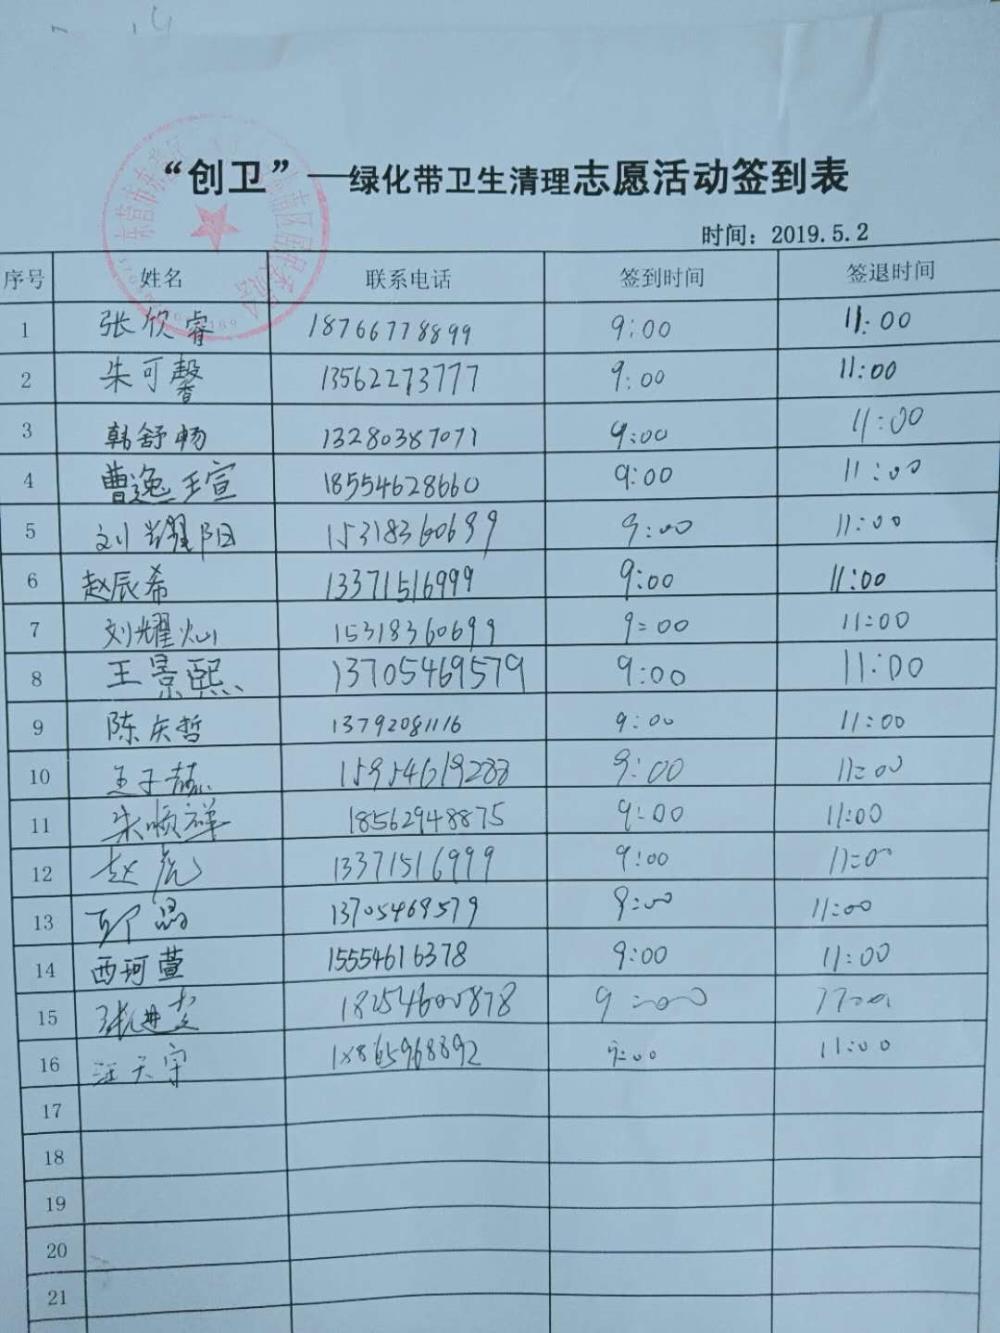 “创卫”—绿化带卫生清理志愿活动签到表
时间：2019.5.2
序号 姓名 联系电话 签到时间 签退时间
1 张欣睿 18766778899 9:00 11:00
2 朱可馨 13562273777 9:00 11:00
3 韩舒畅 13280387071 9:00 11:00
4 曹逸王宣 18554628660 9:00 11:00
5 刘耀阳 15318360699 9:00 11:00
6 赵辰希 13371516999 9:00 11:00
7 刘耀灿 15318360699 9:00 11:00
8 王景熙 13705469579 9:00 11:00
9 陈庆哲 13792081116 9:00 11:00
10 王子赫 15954619288 9:00 11:00
11 朱顺祥 18562948875 9:00 11:00
12 赵虎 13371516999 9:00 11:00
13 13705469579 9:00 11:00
14 西珂萱 15554616378 9:00 11:00
15 张进 18254600878 9:00 11:00
16 汪天宇 18865968892 9:00 11:00
17
18
19
20
21